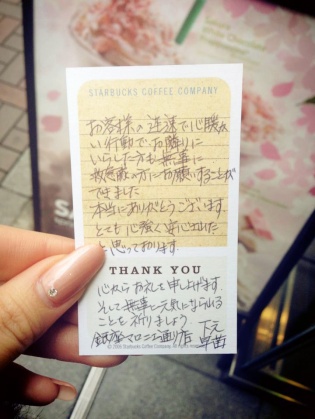 STARBUCKS COFFEE COMPANY
お客様の迅速で心勝な
い行動で、お隣りに
いらした方も無事に
救急隊の方にお願いすることが
できました
本当にありがとうございます。
とても心強く安心された
と思っております。
THANK YOU
心からお礼を申し上げます。
そして無事に元気になられる
ことを祈りましょう
銀座マロニエ通り店
Starbucks Coffee Company